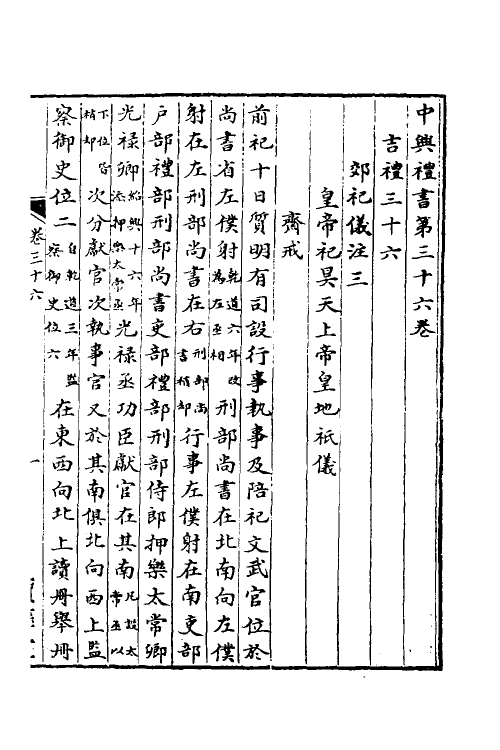 中興禮書第三十六卷
吉禮三十六
郊祀儀注三
皇帝祀昊天上帝皇地祇儀
齋戒
前祀十日質明有司設行事執事及陪祀文武官位於
尚書省左僕射乾道六年改為左丞相刑部尚書在北南向左僕
射在左刑部尚書在右刑部尚書稍却行事左僕射在南吏部
戶部禮部刑部尚書吏部禮部刑部侍郎押樂太常卿
光禄卿紹興十六年添押樂太常丞光禄丞功臣獻官在其南凡設太常丞以
下位皆稍却次分獻官次執事官又於其南俱北向西上監
察御史位二自乾道三年監察御史位六在東西向北上讀冊舉冊
卷三十六
一